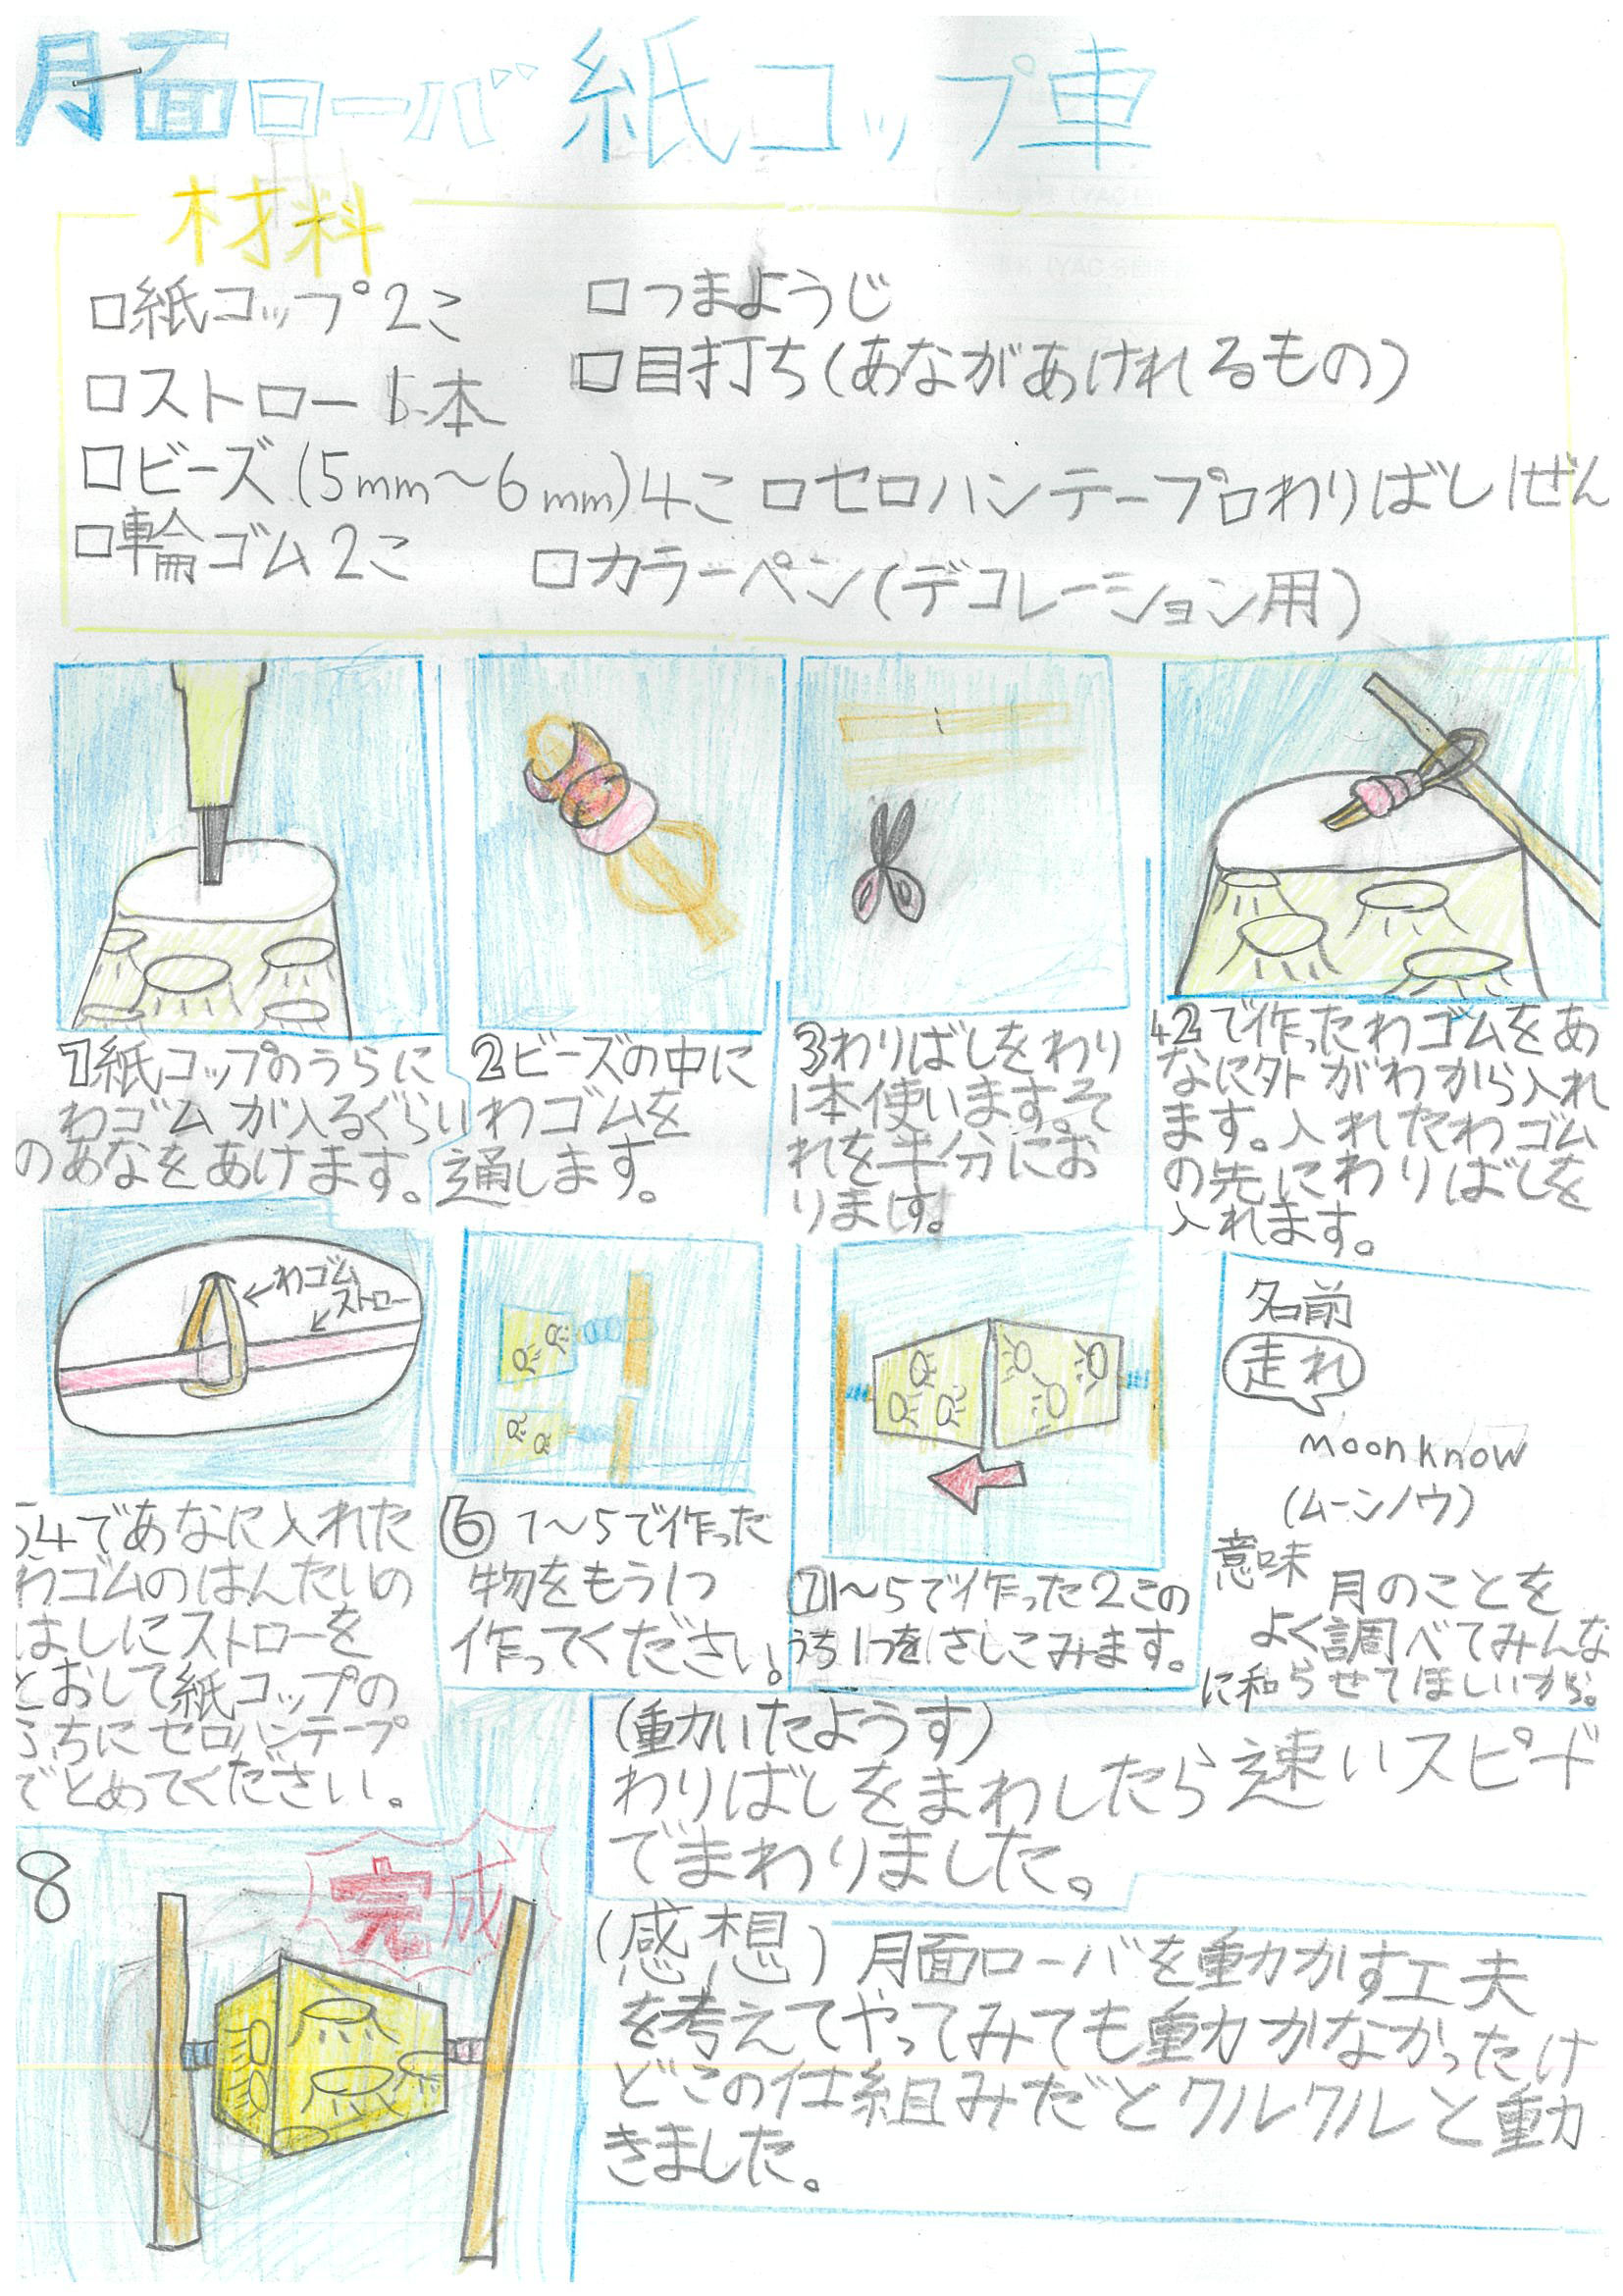 月面ローバ 紙コップ車
材料
□紙コップ2こ
□つまようじ
□ストロー 本
□目打ち(あながあけれるもの)
□ビーズ(5mm〜6mm)4こ □セロハンテープ□わりばし1ぜん
□輪ゴム2こ
□カラーペン(デコレーション用)
1紙コップのうらに
わゴムが入るぐらい
のあなをあけます。
2ビーズの中に
わゴムを
通します。
3わりばしをわり
1本使います。そ
れを半分にお
ります。
42で作ったわゴムをあ
なに外がわから入れ
ます。入れたわゴム
の先にわりばしを
入れます。
←わゴム
ストロー
54であなに入れた
わゴムのはんたいの
はしにストローを
とおして紙コップの
ふちにセロハンテープ
でとめてください。
⑥1〜5で作った
物をもう1つ
作ってください。
⑦1〜5で作った2この
うち1つをさしこみます。
名前
走れ
moon know
(ムーンノウ)
意味
月のことを
よく調べてみんな
に和らせてほしいから。
(動いたようす)
わりばしをまわしたら速いスピード
でまわりました。
8
完成
(感想)月面ローバを動かす工夫
を考えてやってみても動かなかったけ
どこの仕組みだとクルクルと動
きました。